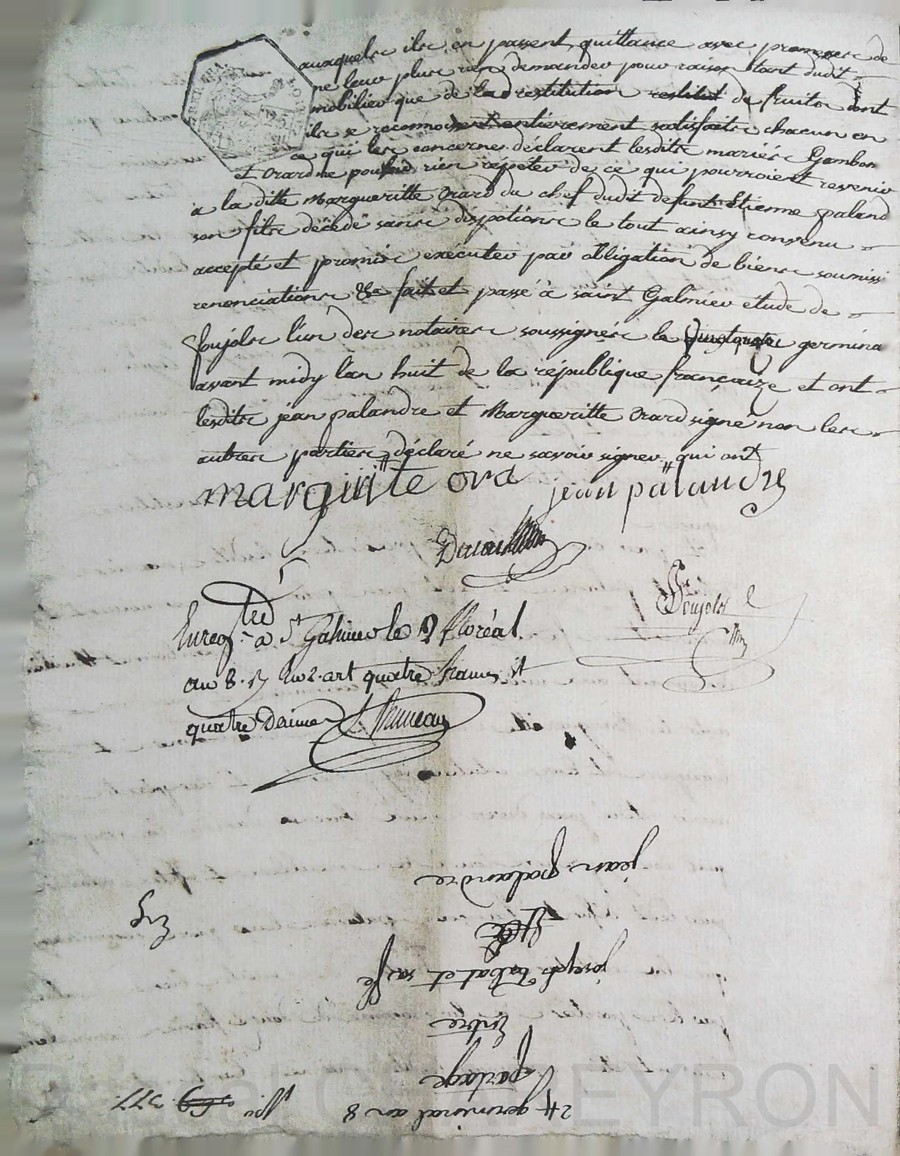 auxquels ils en passent quittance avec promesse de
ne leur plus rien demander pour raison tant dudit
mobilier que de la restitution de fruits dont
ils se reconnoissent entièrement satisfaits chacun en
ce qui les concerne déclarent lesdits mariés Gambon
et Orard ne pouvoir rien repeter de ce qui pourroient revenir
à la ditte Margueritte Orard du chef dudit defunt Etienne paland
son fils décédé sans dispotions le tout ainsy convenu
accepté et promis exécuter par obligation de biens soumissi
renonciations &a fait et passé à saint Galmier étude de
foujols l'un des notaires soussignés le germina
avant midy l'an huit de la république françaize et ont
lesdits jean palandre et Margueritte Orard signé non les
autres parties déclaré ne savoir signer qui ont
margurite ora jean palandre
foujols
Enregtré à St Galmier le floréal
an 8. art quatre francs
quatre
jean palandre
joseph et sa fe
Entre
partage
24 germinal an 8
377
CHAPEYRON